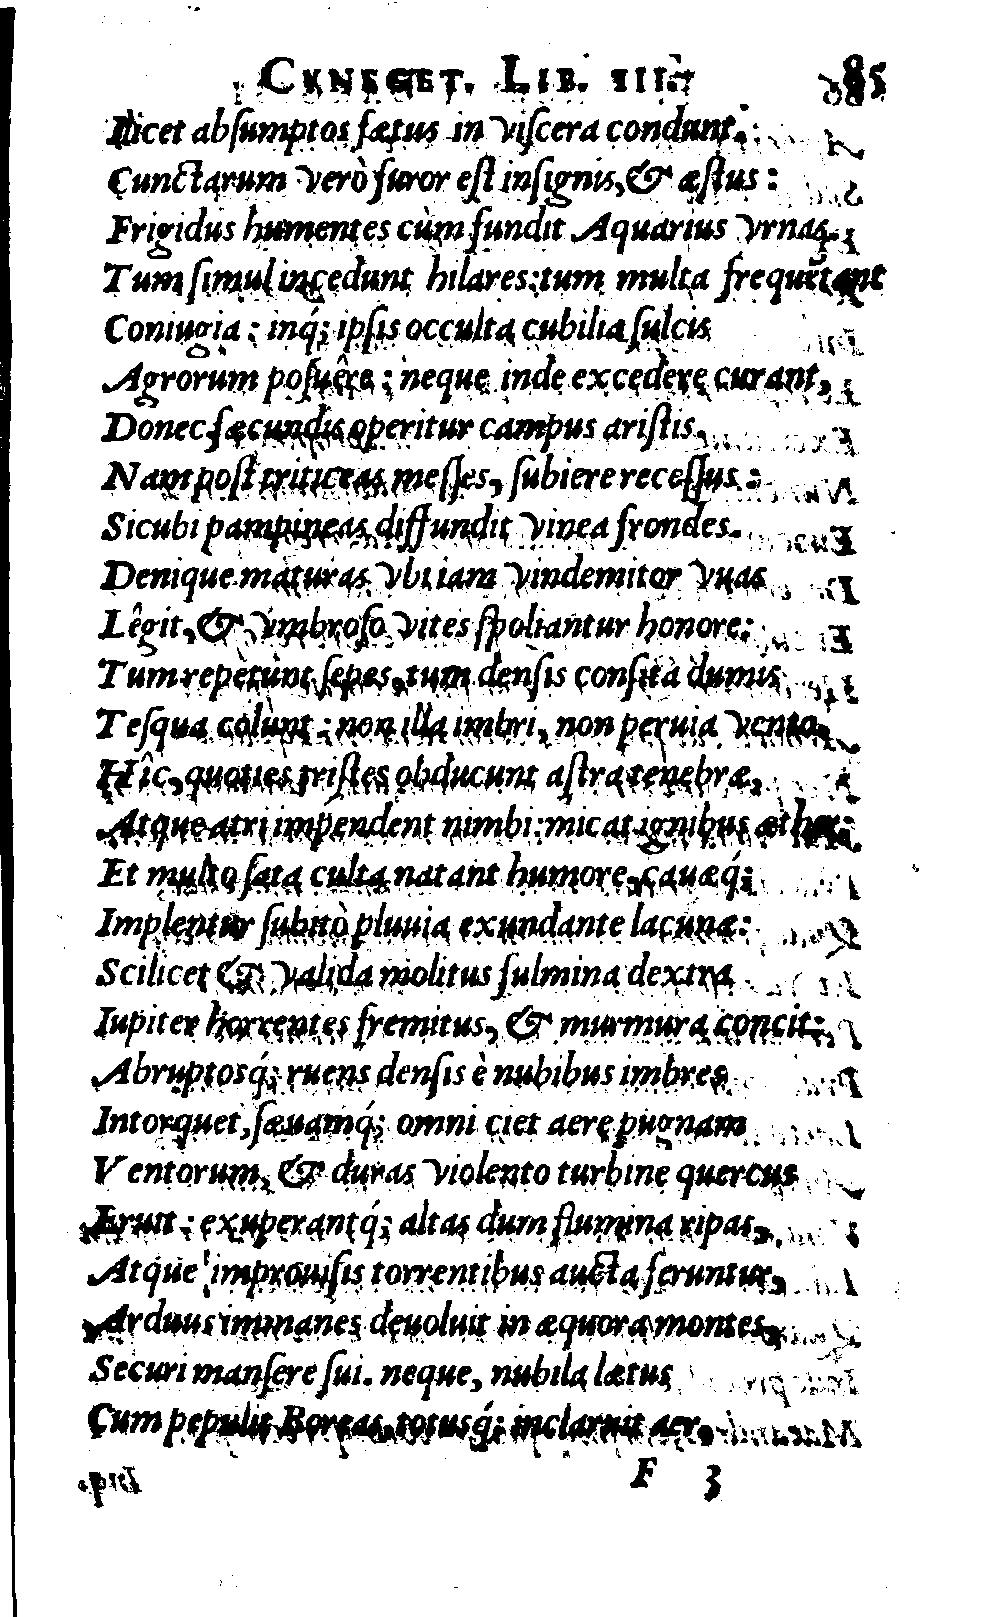 CYNEGET. LIB. III. 85
Ilicet absumptos fætus in viscera condunt.
Cunctarum verò furor est insignis, & æstus:
Frigidus humentes cùm fundit Aquarius vrnas.
Tum simul incedunt hilares: tum multa frequētant
Coniugia: inq́; ipsis occulta cubilia sulcis
Agrorum posuêre: neque inde excedere curant,
Donec fæcundis operitur campus aristis.
Nam post triticeas messes, subiere recessus:
Sicubi pampineas diffundit vinea frondes.
Denique maturas vbi iam vindemitor vuas
Lêgit, & vmbroso vites spoliantur honore:
Tum repetunt sepes, tum densis consita dumis
Tesqua colunt: non illa imbri, non peruia vento.
Hîc, quoties tristes obducunt astra tenebræ,
Atque atri impendent nimbi: micat ignibus æther:
Et multo sata culta natant humore, cauæq́;
Implentur subitò pluuia exundante lacunæ:
Scilicet & valida molitus fulmina dextra
Iupiter horrentes fremitus, & murmura concit:
Abruptosq́; ruens densis è nubibus imbres
Intorquet, sæuamq́; omni ciet aere pugnam
Ventorum, & duras violento turbine quercus
Eruit: exuperantq́; altas dum flumina ripas,
Atque improuisis torrentibus aucta feruntur,
Arduus immanes deuoluit in æquora montes,
Securi mansere sui. neque, nubila lætus
Cum pepulit Boreas, totusq́; inclaruit aer,
F 3